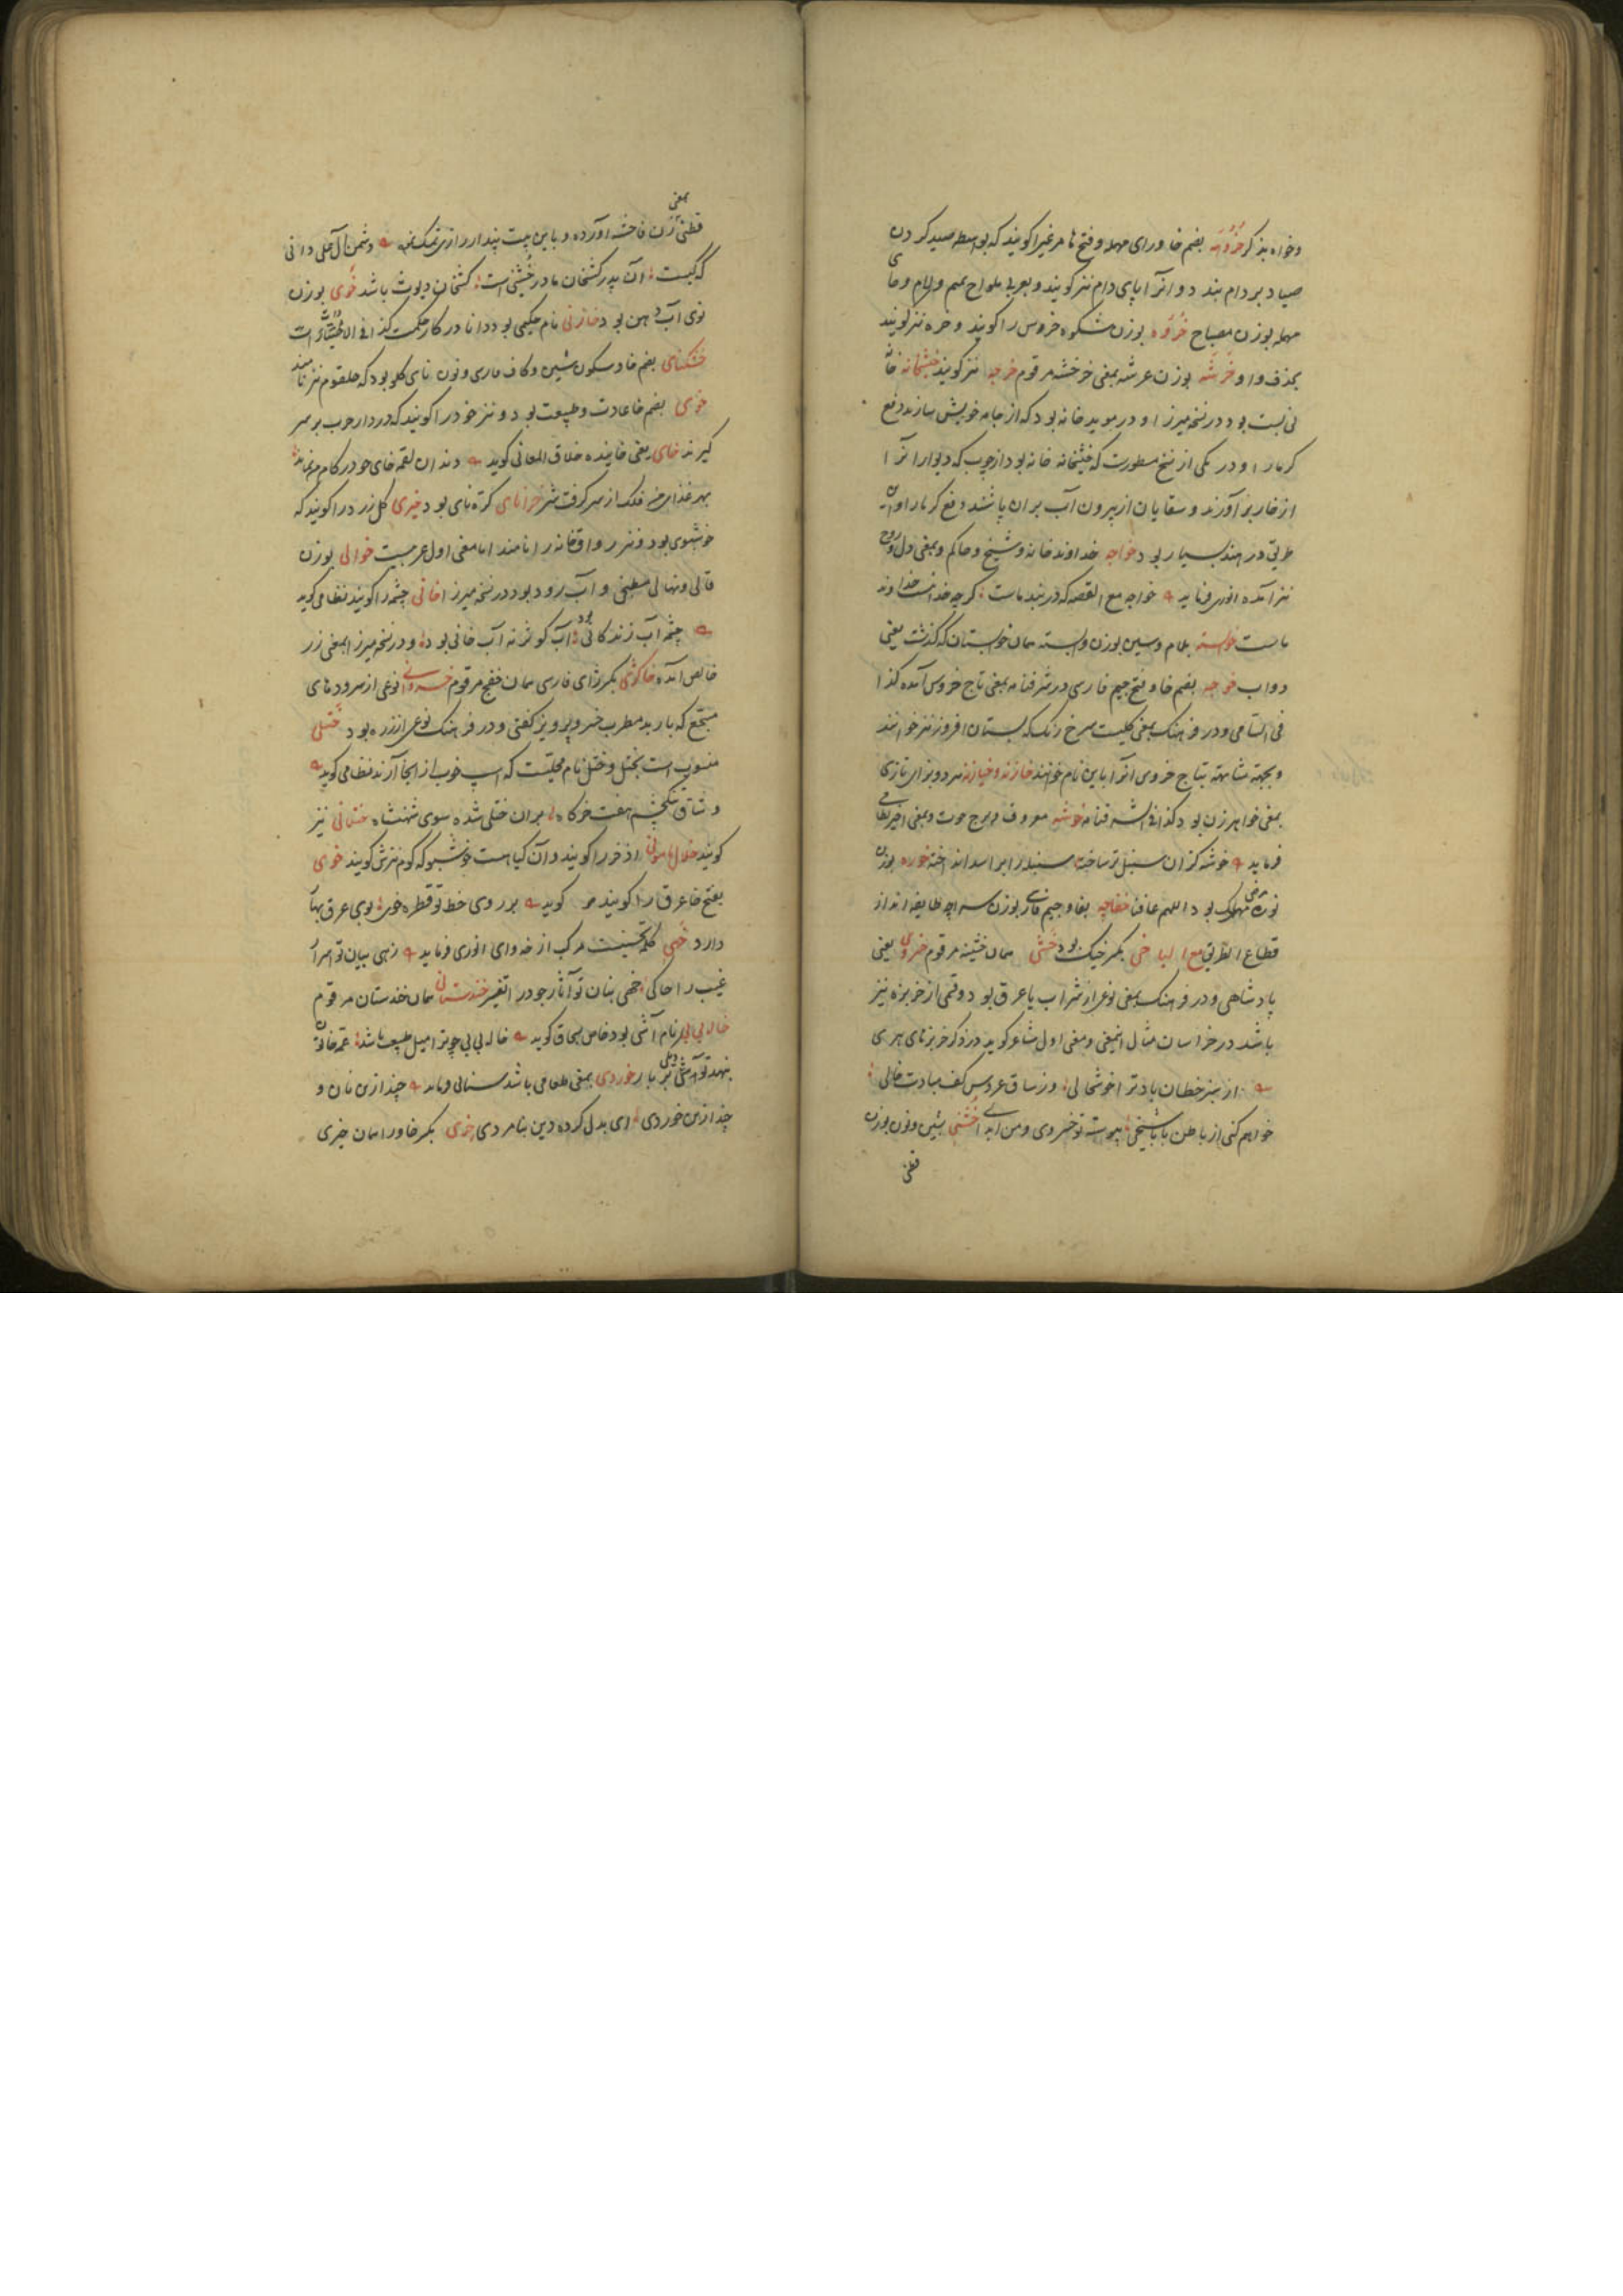 وخواه بذکر خروهه بضم خا و رای مهمله و فتح ها مرغیرا کویند که بواسطه صید کردن
صیاد بر دام بندد و انرا پای دام نیز کویند و بعربی ملواح بمیم و لام و حای
مهمله بوزن مصباح خروه بوزن شکوه خروس را کویند و خره نیز کویند
بحذف واو خرشه بوزن عرشه بمعنی خرخشه مرقوم خرجه نیز کویند خیشخانه خانه
نی بست بود و در نسخه میرزا و در موید خانه بود که از جامه خویش سازند دفع
کرما را و در یکی از نسخ مسطورست که خیشخانه خانه بود از چوب که دیوار انرا
از خار برآورند و سقایان از بیرون آب بران پاشند دفع کرما را و ان
طریق در هند بسیار بود خواجه خداوند خانه و شیخ و حاکم و بمعنی دل و روح
نیز آمده انوری فرماید خواجه مع القصه که در بند ماست کرچه خدا نیست خداوند
ماست خواسته بلام و سین بوزن وابسته همان خواستان که کذشت یعنی
دواب خوجه بضم خا و فتح جیم فارسی در شرفنامه بمعنی تاج خروس آمده کذا
فی السامی و در فرهنک بمعنی کلیست سرخ رنک که بستان افروز نیز خوانند
و بجهة مشابهة بتاج خروس انرا باین نام خوانند خازنه و خیازنه هر دو بزای تازی
بمعنی خواهر زن بود کذا فی الشرفنامه خوشه معروف و برج حوت و بمعنی اخیر نظامی
فرماید خوشه کزان سنبل تر ساخته سنبله را بر اسد انداخته خوره بوزن
نوره مرضی مهلک بود اللهم عافنا خفاجه بفا و جیم فارسی بوزن سراچه طایفه اند از
قطاع الطریق مع الیا خی بکسر خیک بود خشی همان خشینه مرقوم خسروی یعنی
پادشاهی و در فرهنک بمعنی نوعی از شراب یا عرق بود و قسمی از خربزه نیز
باشد در خراسان مثال انمعنی و معنی اول شاعر کوید در ذکر خربزهای هری
از سبز خطان یاد تو اخوشحالی وز ساق عروس کف مبادت خالی
خواهم کنی از باطن بابا شیخی پیوسته تو خسروی و من ابدالی خشنی بشین و نون بوزن
قطنی
بمعنی
قطنی زن فاحشه آورده و باین بیت پندار رازی تمسک نموده دشمن آل علی دانی
که کیست آن پدر کشخان مادر خشنی است کشخان دیوث باشد خوی بوزن
نوی آب دهن بود خازنی نام حکیمی بود دانا در کار حکمت کذا فی الاختیارات
خشکنای بضم خا و سکون شین و کاف فارسی و نون نای کلو بود که حلقوم نیز نامند
خوی بضم خا عادت و طبیعت بود و نیز خود را کویند که در دار حرب بر سر
کیرند خای یعنی خاینده خلاق المعانی کوید دندان لقمه خای چو در کام من نماند
بهر غذا من فلک از سر کرفت شیر خرنای کرنای بود خیری کل زرد را کویند که
خوشبوی بود و نیز رواق خانه را نامند اما معنی اول عربیست خوالی بوزن
قالی و نهالی مطبخی و آب رود بود در نسخه میرزا خانی چشمه را کویند نظامی کوید
چشمه آب زندکانی بود آب کوثر نه آب خانی بود و در نسخه میرزا بمعنی زر
خالص آمده خاکوزی بکسر زای فارسی همان خفج مرقوم خسروانی نوعی از سرودهای
مسجع که باربد مطرب خسرو پرویز کفتی و در فرهنک نوعی از زر ه بود ختلی
منسوب است بختل و ختل نام محلیست که اسب خوب از انجا آرند نظامی کوید
وشاق تنک چشم هفت خرکاه بران ختلی شده سوی شهنشاه ختلانی نیز
کویند خلال مامونی اذخر را کویند و آن کیاهست خوشبو که کوم نیزش کویند خوی
بفتح خا عرق را کویند مر کوید بر روی خط تو قطره خوی بوی عرق بهار
دارد خهی کلمه تحسینست مرکب از خه و ای انوری فرماید زهی بیان تو اسرار
غیب را حاکی خهی بنان تو آثار جود را تفسیر خندستانی همان خندستان مرقوم
خاله بی بی نام آشی بود خاص بسحاق کوید خاله بی بی چو ترا میل طبیعت باشد عمه خاتون
بنهد تو آشی بر بار خوردی بمعنی طعامی باشد سنائی فرماید چند ازین نان و
چند ازین خوردی ای بدل کرده دین بنامردی خیری بکسر خا و را همان خیزی